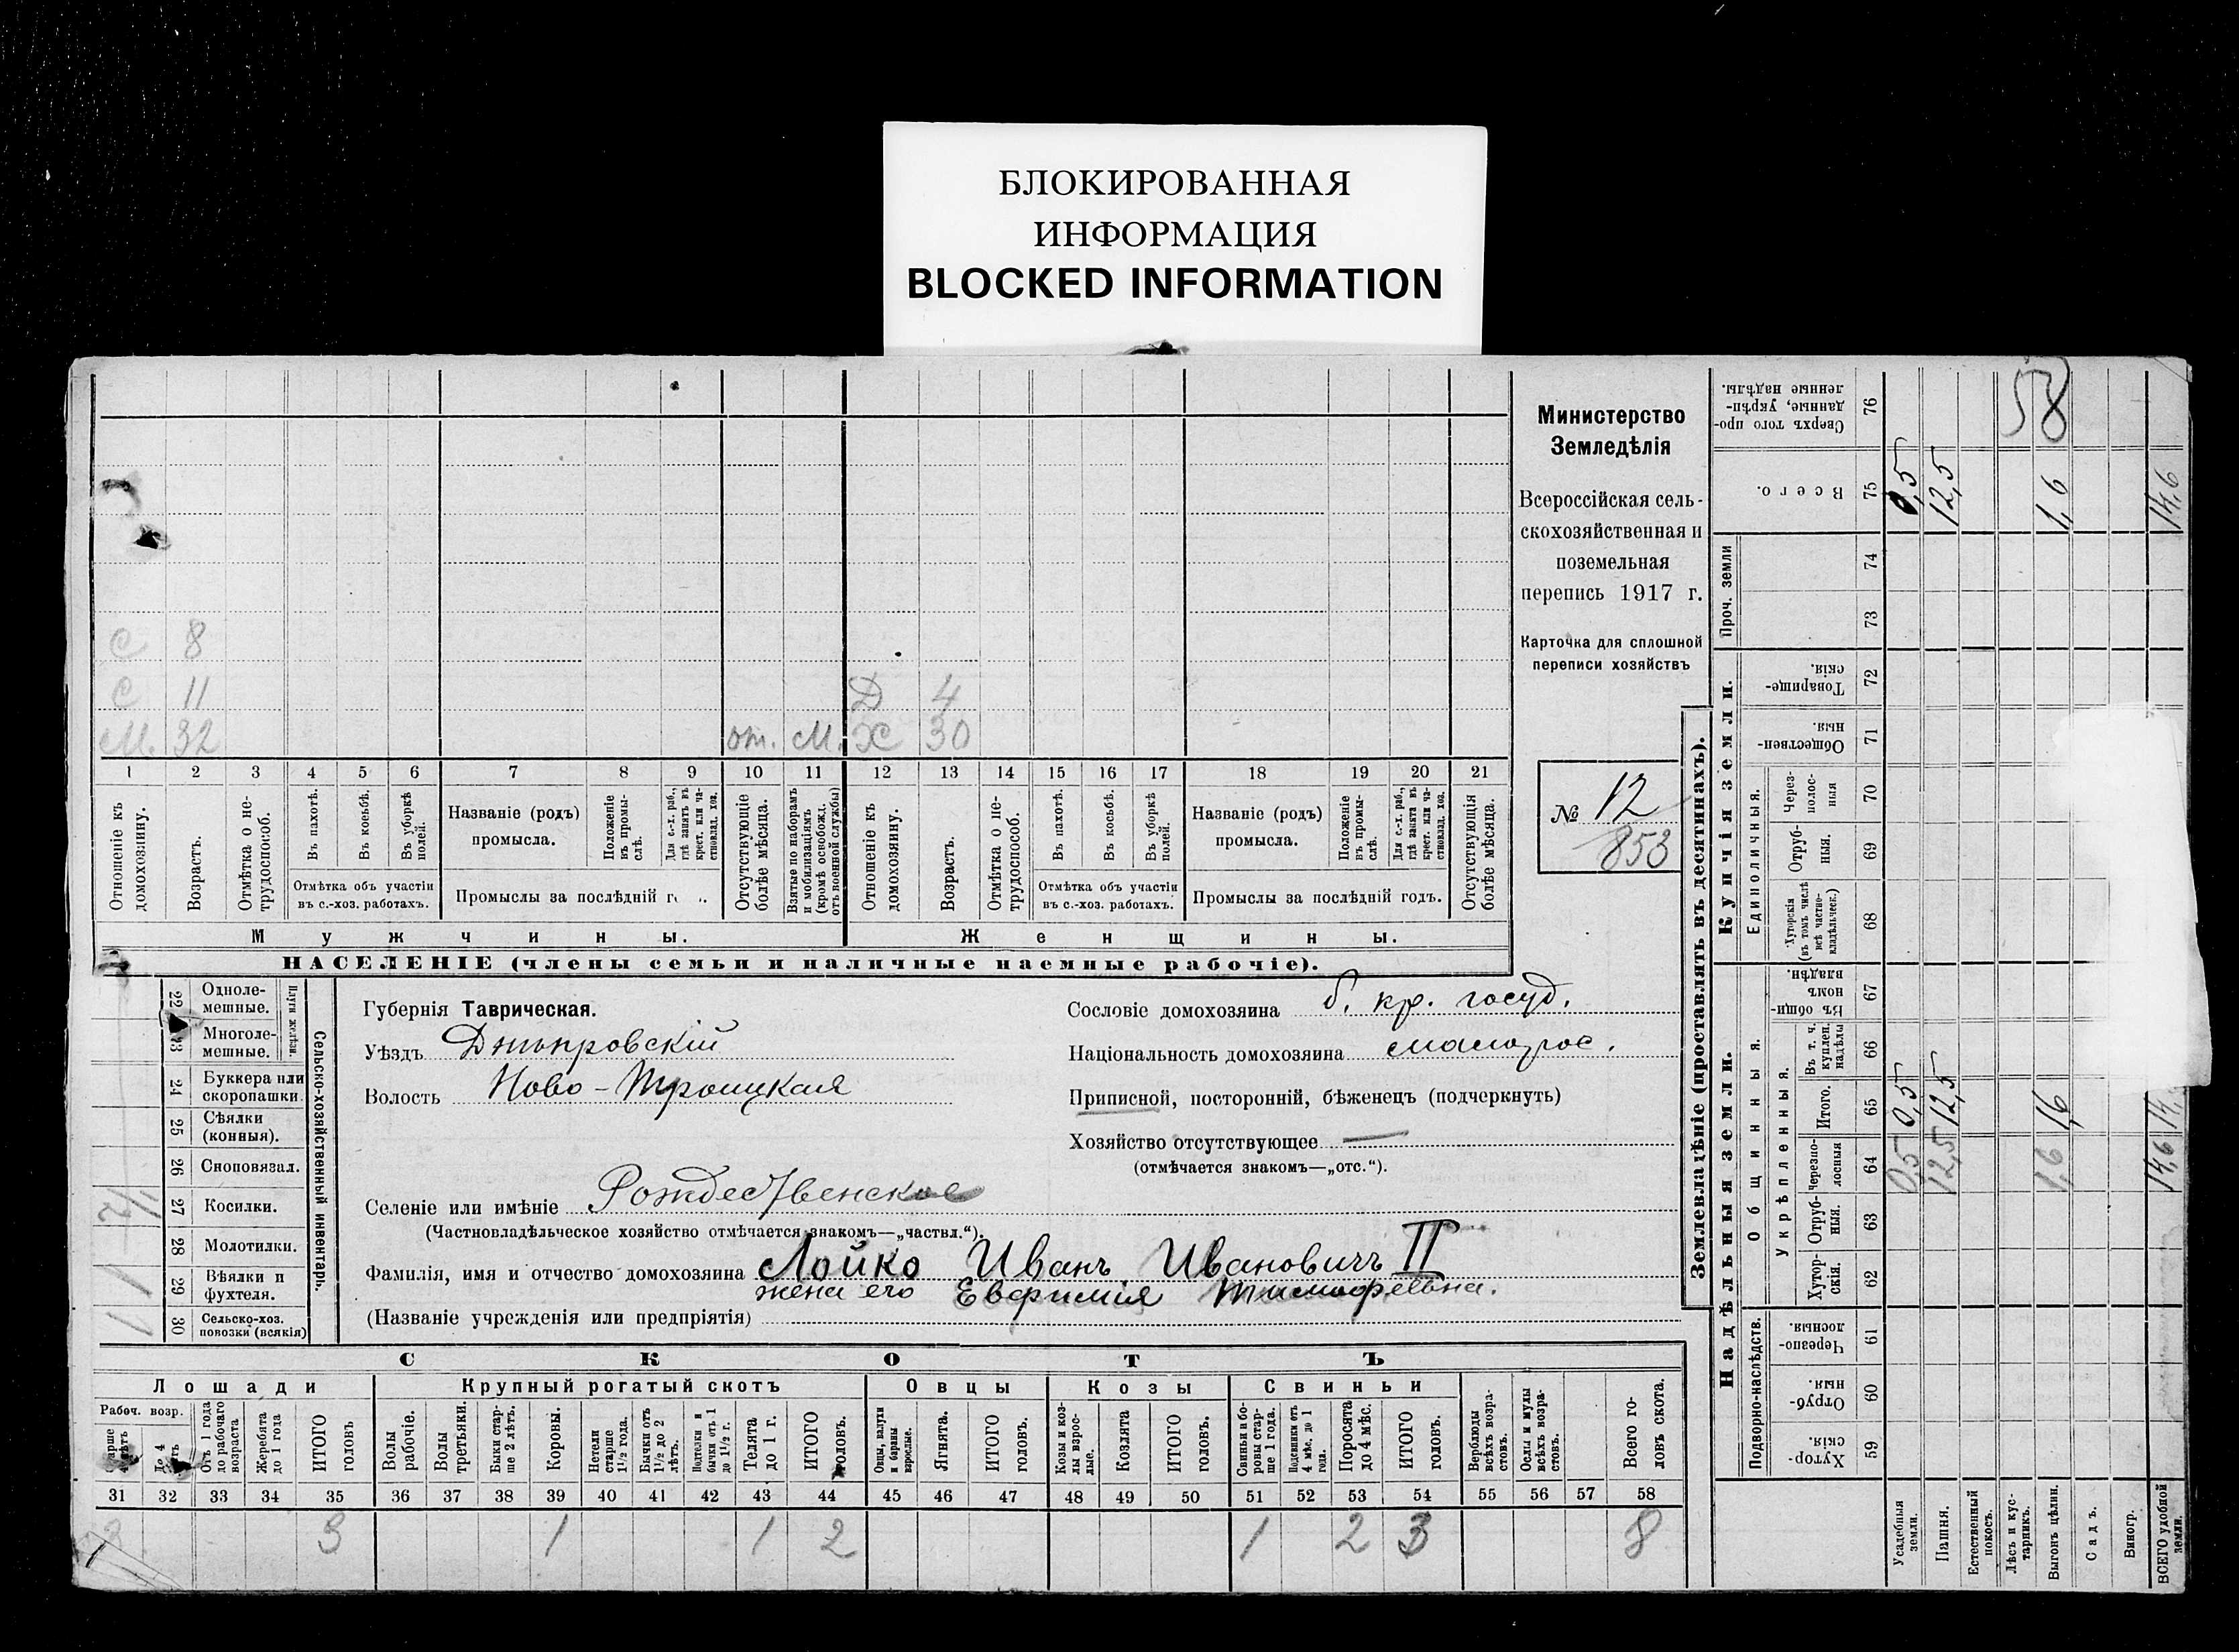 БЛОКИРОВАННАЯ
ИНФОРМАЦИЯ
BLOCKED INFORMATION
С 8
С 11
Д 4
М. 32 от. М. Х 30
1 2 3 4 5 6 7 8 9 10 11 12 13 14 15 16 17 18 19 20 21
Отношеніе къ домохозяину.
Возрастъ.
Отмѣтка о не-трудоспособ.
Въ пахотѣ.
Въ косьбѣ.
Въ уборкѣ полей.
Отмѣтка объ участіи
въ с.-хоз. работахъ.
Названіе (родъ)
промысла.
Положеніе въ промы-слѣ.
Для с.-х. раб., гдѣ занятъ въ крест. или ча-стновлад. хоз.
Промыслы за послѣдній г
Отсутствующіе болѣе мѣсяца.
Взятые по наборамъ и мобилизаціямъ (кромѣ освобожд. отъ военной службы)
Отношеніе къ домохозяину.
Возрастъ.
Отмѣтка о не-трудоспособ.
Въ пахотѣ.
Въ косьбѣ.
Въ уборкѣ полей.
Отмѣтка объ участіи
въ с.-хоз. работахъ.
Названіе (родъ)
промысла.
Положеніе въ промы-слѣ.
Для с.-х. раб., гдѣ занята въ крест. или ча-стновлад. хоз.
Промыслы за послѣдній годъ.
Отсутствующія болѣе мѣсяца.
Мужчины.
Женщины.
НАСЕЛЕНІЕ (члены семьи и наличные наемные рабочіе).
Министерство
Земледѣлія
Всероссійская сель-
скохозяйственная и
поземельная
перепись 1917 г.
Карточка для сплошной
переписи хозяйствъ
№ 12
853
22 Одноле-мешные.
23 Многоле-мешные.
Плуги желѣзн.
24 Буккера или скоропашки.
25 Сѣялки (конныя).
26 Сноповязал.
27 Косилки.
28 Молотилки.
29 Вѣялки и фухтеля. 1
30 Сельско-хоз. повозки (всякія)
Сельско-хозяйственный инвентарь.
Губернія Таврическая.
Уѣздъ Днѣпровскій
Волость Ново-Троицкая
Селеніе или имѣніе Рождественское
(Частновладѣльческое хозяйство отмѣчается знакомъ—„частвл.“).
Фамилія, имя и отчество домохозяина Лойко Иванъ Ивановичъ II
жена его Евфимія Тимофеевна.
(Названіе учрежденія или предпріятія)
Сословіе домохозяина б. кр. госуд.
Національность домохозяина малорос.
Приписной, посторонній, бѣженец (подчеркнуть)
Хозяйство отсутствующее —
(отмѣчается знакомъ—„отс.“).
СКОТЪ
Лошади
Крупный рогатый скотъ
Овцы
Козы
Свиньи
Рабоч. возр.
Старше 4 лѣтъ
До 4 лѣтъ
Отъ 1 года до рабочаго возраста
Жеребята до 1 года
ИТОГО головъ
Волы рабочіе.
Волы третьяки.
Быки стар-ше 2 лѣтъ.
Коровы.
Нетели старше 1½ года.
Бычки отъ 1½ до 2 лѣтъ.
Подтелки и бычки отъ 1 до 1½ г.
Телята до 1 г.
ИТОГО головъ.
Овцы, валухи и бараны взрослые.
Ягнята.
ИТОГО головъ.
Козы и коз-лы взрос-лые.
Козлята
ИТОГО головъ.
Свиньи и бо-ровы стар-ше 1 года.
Подсвинки отъ 4 мѣс. до 1 года.
Поросята до 4 мѣс.
ИТОГО головъ.
Верблюды всѣхъ возра-стовъ.
Ослы и мулы всѣхъ возра-стовъ.
Всего го-ловъ скота.
31 32 33 34 35 36 37 38 39 40 41 42 43 44 45 46 47 48 49 50 51 52 53 54 55 56 57 58
3 1 1 2 1 2 3 8
Землевладѣніе (проставлять въ десятинахъ).
Надѣльныя земли.
Купчія земли.
Проч. земли
Подворно-наслѣдств.
Общинныя.
Укрѣпленныя.
Единоличныя.
Хутор-скія. 59
Отруб-ныя. 60
Черезпо-лосныя 61
Хутор-скія. 62
Отруб-ныя. 63
Черезпо-лосныя 64
Итого. 65
Въ т. ч. куплен. надѣлы 66
Въ общин-номъ владѣн. 67
Хуторскія (въ томъ числѣ всѣ частно-владѣльческ.) 68
Отруб-ныя. 69
Через-полос-ныя 70
Обществен-ныя. 71
Товарище-скія. 72
73
74
Всего. 75
Сверхъ того про-данные, укрѣп-ленные надѣлы. 76
Усадебныя земли. 0,5 0,5 0,5
Пашня. 12,5 12,5 12,5
Естественный покосъ.
Лѣсъ и кус-тарникъ.
Выгонъ цѣлин. 1,6 1,6 1,6
Садъ.
Виногр.
ВСЕГО удобной земли. 14,6 14, 14,6
58